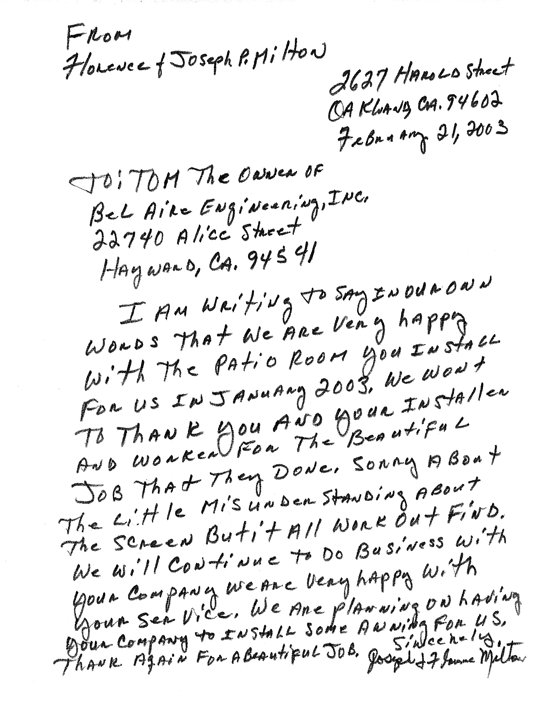 From
Florence & Joseph P. Milton
2627 Harold Street
Oakland, CA. 94602
February 21, 2003
To: Tom The Owner of
Bel Aire Engineering, Inc.
22740 Alice Street
Hayward, CA. 94541
I Am Writing to Say In Our Own
Words That We Are Very happy
With The Patio Room you Install
For us In January 2003. We Wont
To Thank You And Your Installer
And Worker For The Beautiful
Job That They Done. Sorry A Bout
The Little Misunderstanding About
The Screen But it All Work Out Find.
We Will Continue to Do Business With
Your Company We Are Very happy With
Your Service. We Are planning on having
Your Company to Install Some Awning For us.
Thank Again For A Beautiful Job. Sincerely,
Joseph & Florence Milton